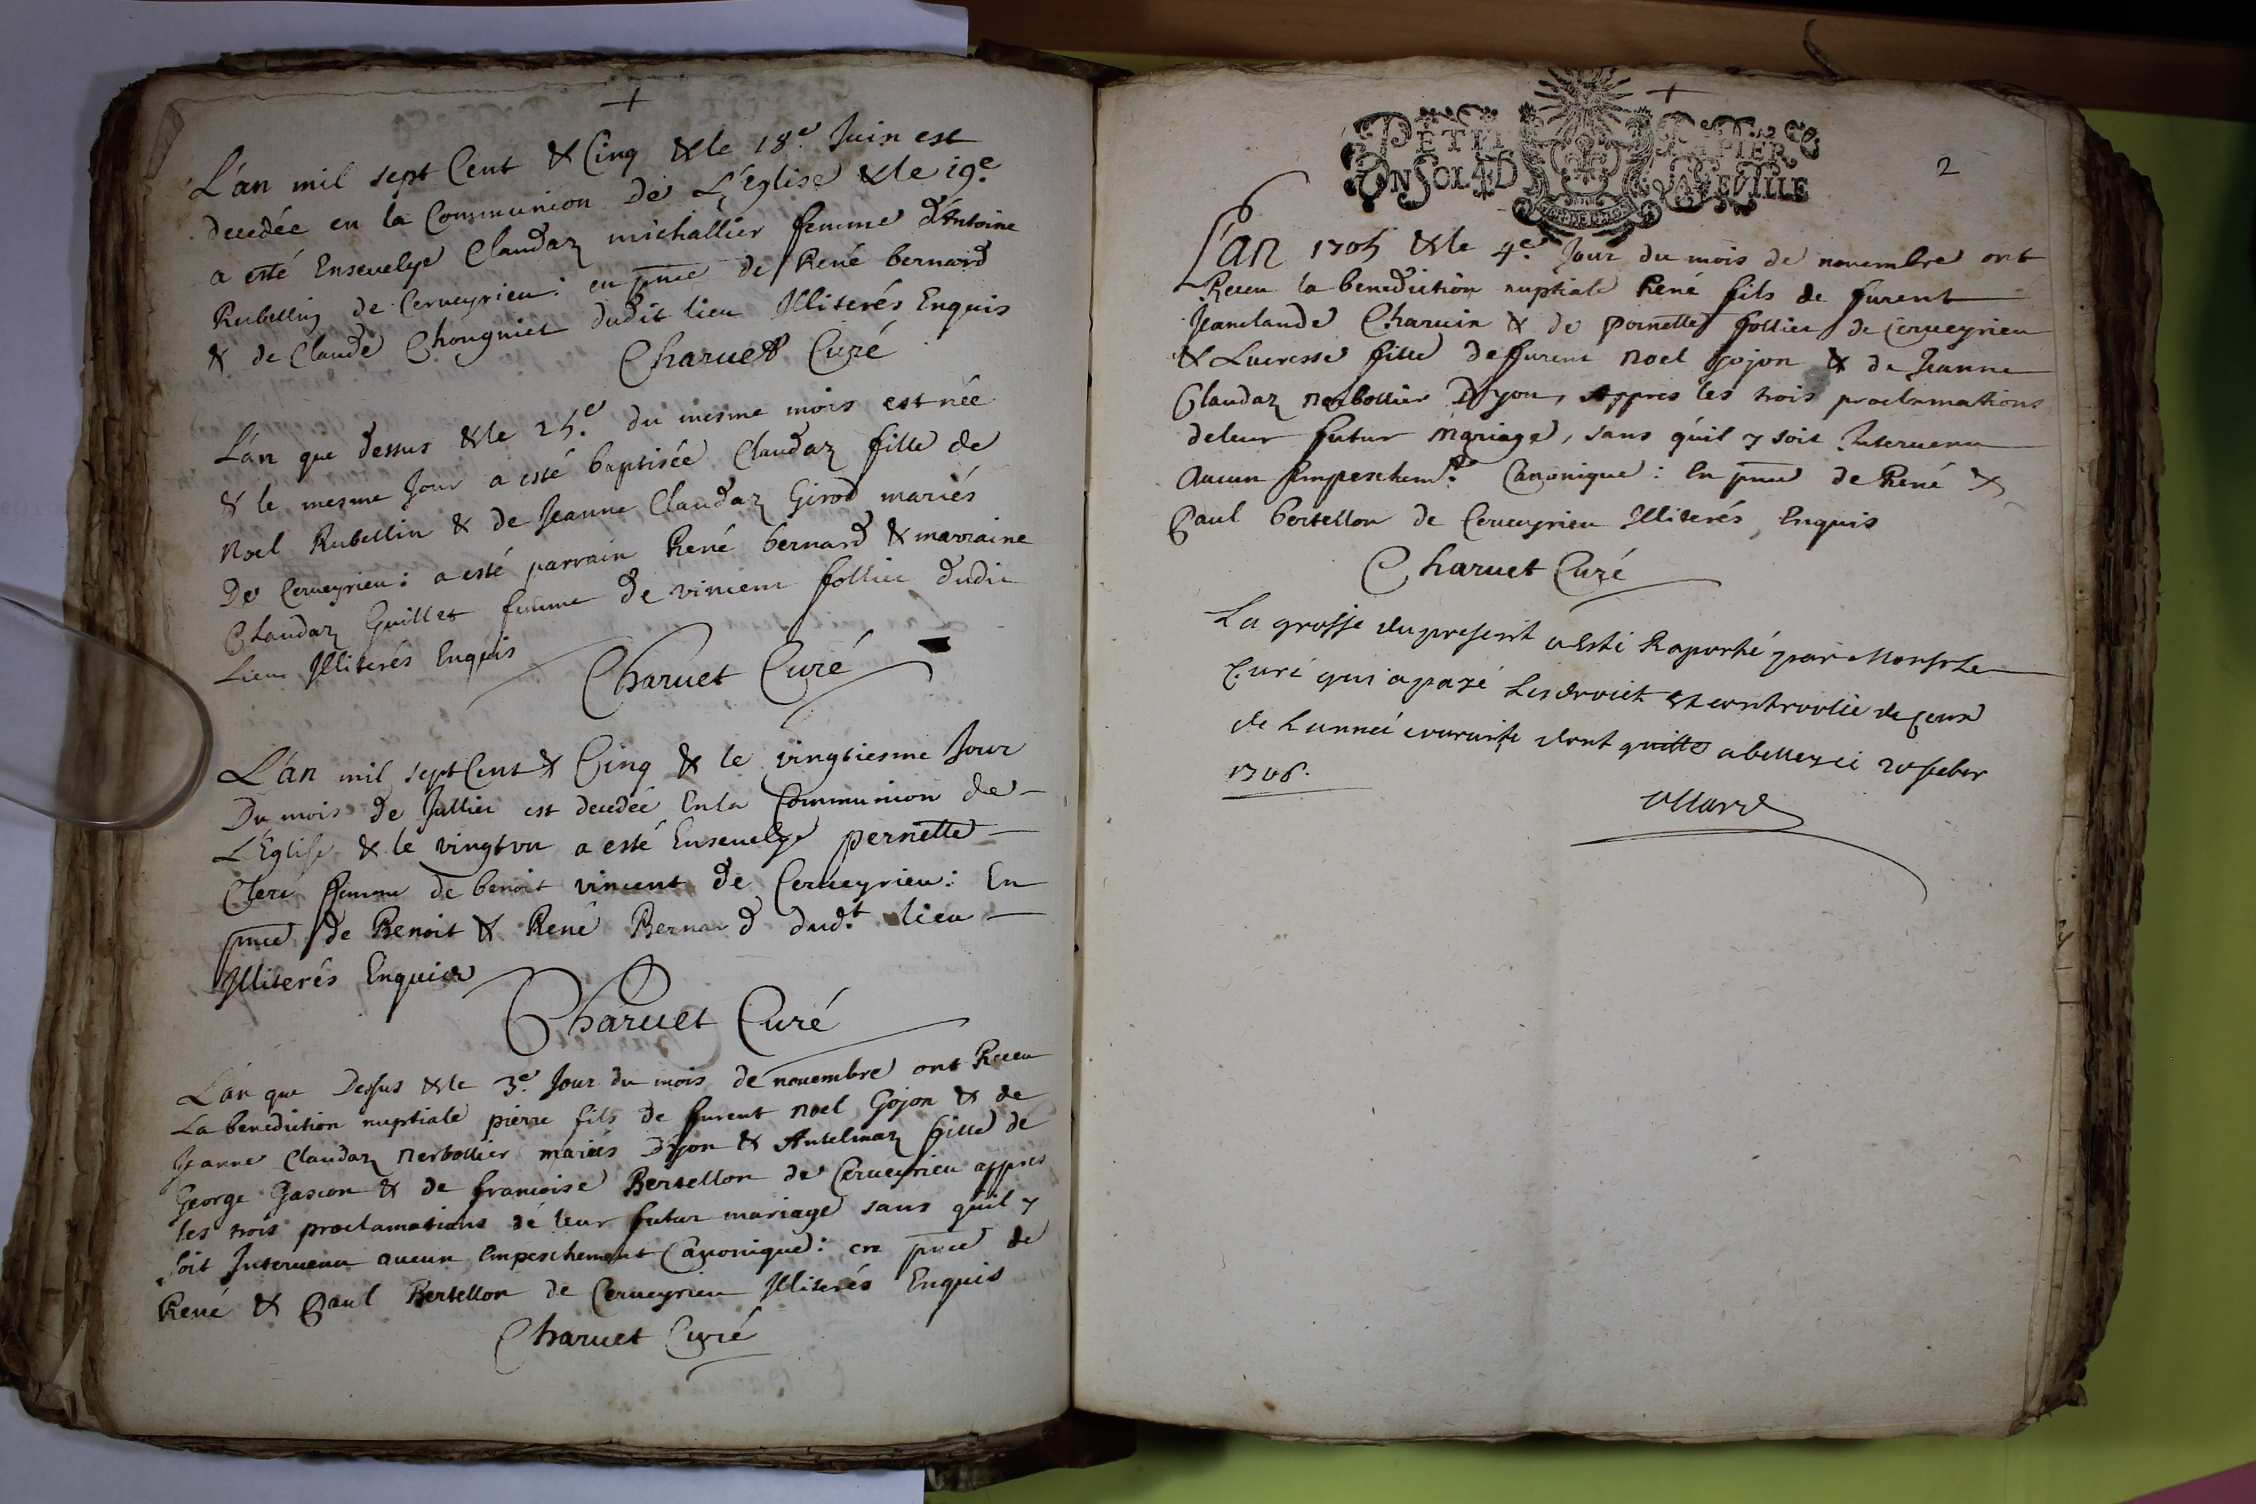 +
L'an mil sept Cent & Cinq & le 18.e Juin est
decedée en la Communion De L'Eglise & le 19.e
a esté Ensevelye Claudaz michallier femme d'Antoine
Rubellin de Cerueyrieu : en pnce de René bernard
& de Claude Chongniet dudit lieu Illiterés Enquis
Charuet Curé
L'an que dessus & le 25.e du mesme mois est née
& le mesme Jour a esté baptisée Claudaz fille de
Noel Rubellin & de Jeanne Claudaz Girod mariés
De Cerueyrieu : a esté parrain René bernard & marraine
Claudaz Guillet femme de vincent follier dudit
Lieu Illiterés Enquis
Charuet Curé
L'an mil sept Cent & Cinq & le vingtiesme Jour
Du mois de Jullier est decedée En la Communion de
L'Eglise & le vingtvn a esté Enseuelye pernette
Clerc femme de benoit vincent de Cerueyrieu : En
pnce de Benoit & René Bernard dud.t lieu
Illiterés Enquis
Charuet Curé
L'an que Dessus & le 3.e Jour du mois de nouembre ont Receu
La benediction nuptiale pierre fils de furent Noel Gojon & de
Jeanne Claudaz Nerbollier mariés D'yon & Antelmaz fille de
George Gascon & de francoise Bertellon de Cerueyrieu appres
les trois proclamations de leur futur mariage sans qu'il y
soit Interuenu aucun Empeschement Canonique : en pnce de
René & Paul Bertellon de Cerueyrieu Illiterés Enquis
Charuet Curé
+
PETIT PAPIER
UN SOL 4 D LA FEUILLE
2
L'an 1705 & le 4.e Jour du mois de nouembre ont
Receu la benediction nuptiale René fils de furent
Jeanclaude Charuin & de pernette follier de Cerueyrieu
& Lucresse fille de furent Noel Gojon & de Jeanne
Claudaz Nerbollier D'yon, Appres les trois proclamations
de leur futur Mariage, sans qu'il y soit Interuenu
Aucun Empeschem.t Canonique : En pnce de René &
Paul bertellon de Cerueyrieu Illiterés, Enquis
Charuet Curé
La grosse du present a Esté Raporté par Monsr Le
Curé qui a payé Les droict et controolle de ceux
de L'année courante dont quitte a belley ce 20 feber
1706.